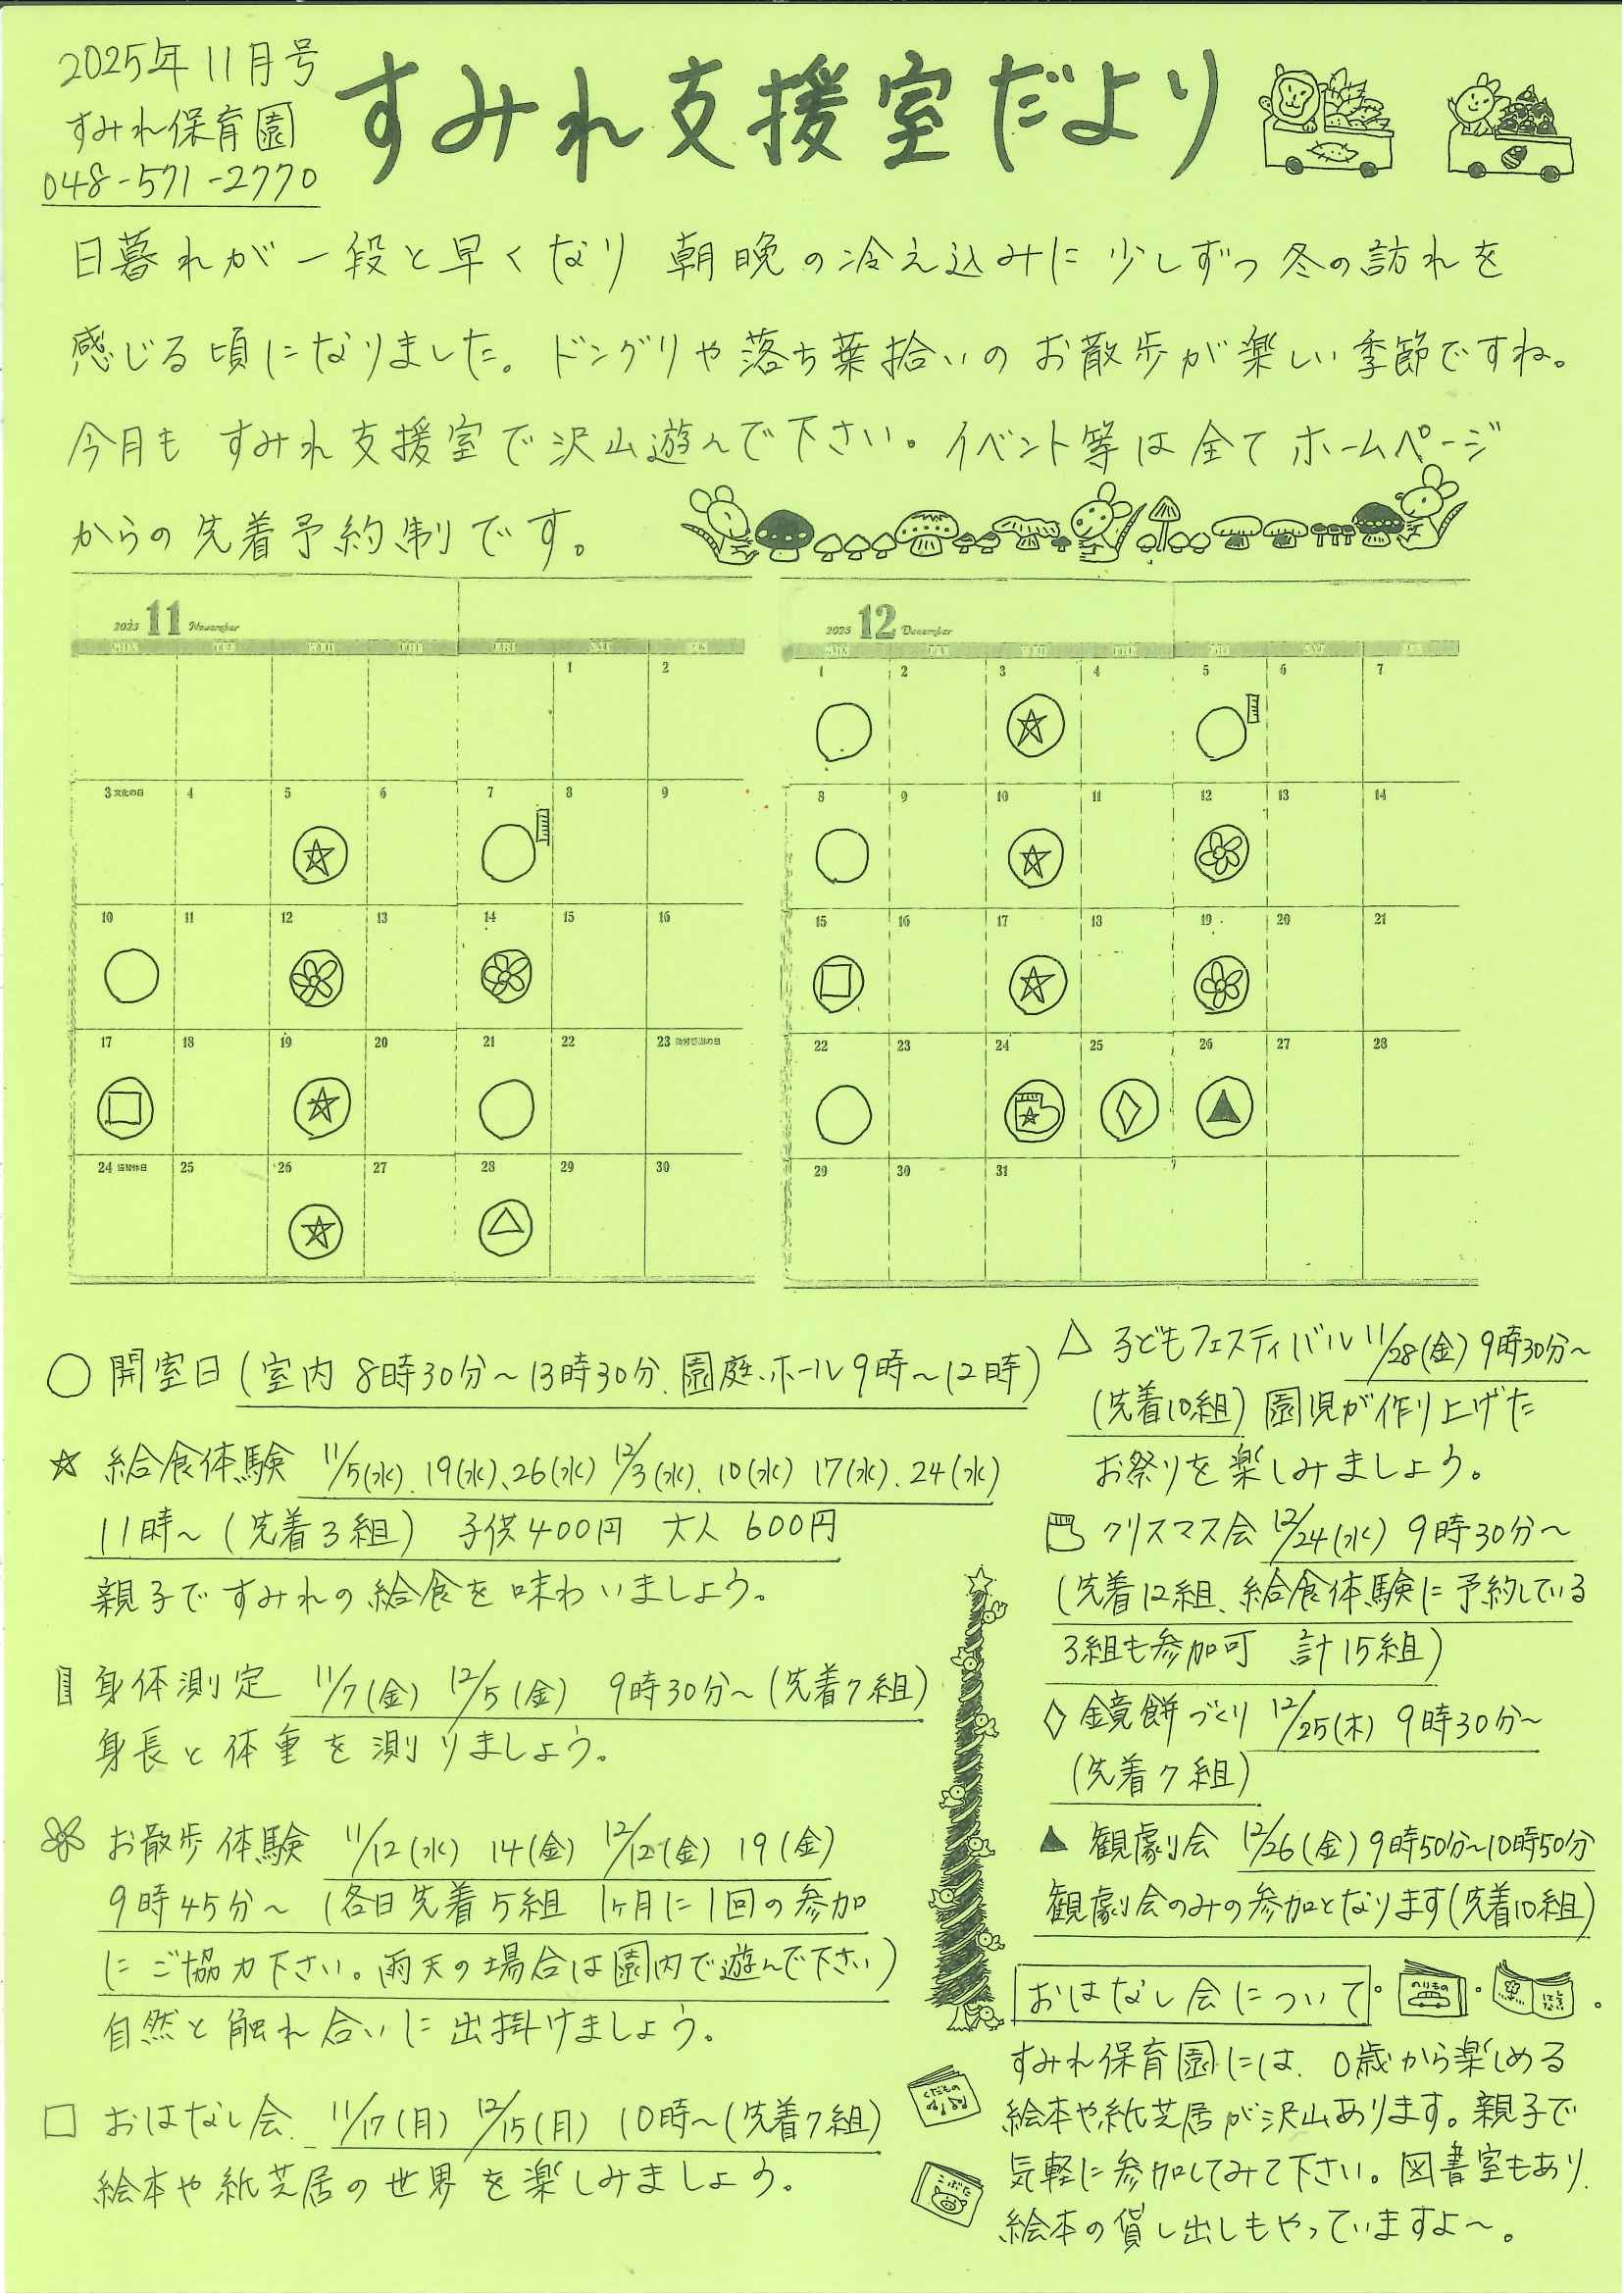 2025年11月号
すみれ保育園
048-571-2770
すみれ支援室だより
日暮れが一段と早くなり 朝晩の冷え込みに 少しずつ冬の訪れを
感じる頃になりました。ドングリや落ち葉拾いのお散歩が楽しい季節ですね。
今月も すみれ支援室で沢山遊んで下さい。イベント等は全てホームページ
からの先着予約制です。
2025 11 November
1 2
3 文化の日 4 5 6 7 8 9
10 11 12 13 14 15 16
17 18 19 20 21 22 23
24 25 26 27 28 29 30
2025 12 December
1 2 3 4 5 6 7
8 9 10 11 12 13 14
15 16 17 18 19 20 21
22 23 24 25 26 27 28
29 30 31
○ 開室日(室内 8時30分～13時30分、園庭・ホール9時～12時)
☆ 給食体験 11/5(水)、19(水)、26(水) 12/3(水)、10(水) 17(水)、24(水)
11時～(先着3組) 子供400円 大人 600円
親子ですみれの給食を味わいましょう。
身体測定 11/7(金) 12/5(金) 9時30分～(先着7組)
身長と体重を測りましょう。
お散歩体験 11/12(水) 14(金) 12/12(金) 19(金)
9時45分～ (各日先着5組 1ヶ月に1回の参加
にご協力下さい。雨天の場合は園内で遊んで下さい)
自然と触れ合いに出掛けましょう。
□ おはなし会 11/17(月) 12/15(月) 10時～(先着7組)
絵本や紙芝居の世界を楽しみましょう。
△ 子どもフェスティバル 11/28(金) 9時30分～
(先着10組) 園児が作り上げた
お祭りを楽しみましょう。
クリスマス会 12/24(水) 9時30分～
(先着12組、給食体験に予約している
3組も参加可 計15組)
◇ 鏡餅づくり 12/25(木) 9時30分～
(先着7組)
▲ 観劇会 12/26(金) 9時50分～10時50分
観劇会のみの参加となります(先着10組)
おはなし会について
のりもの
すみれ保育園には、0歳から楽しめる
絵本や紙芝居が沢山あります。親子で
気軽に参加してみて下さい。図書室もあり、
絵本の貸し出しもやっていますよ～。
くだもの
こぶた